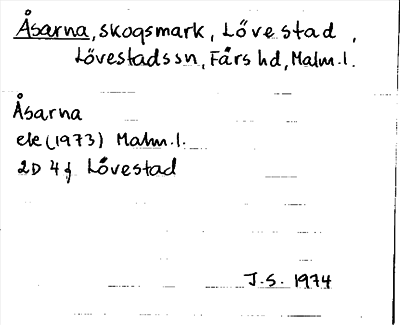 Åsarna, skogsmark, Lövestad,
Lövestads sn, Färs hd, Malm.l.
Åsarna
ek (1973) Malm.l.
2D 4f Lövestad
J.S. 1974